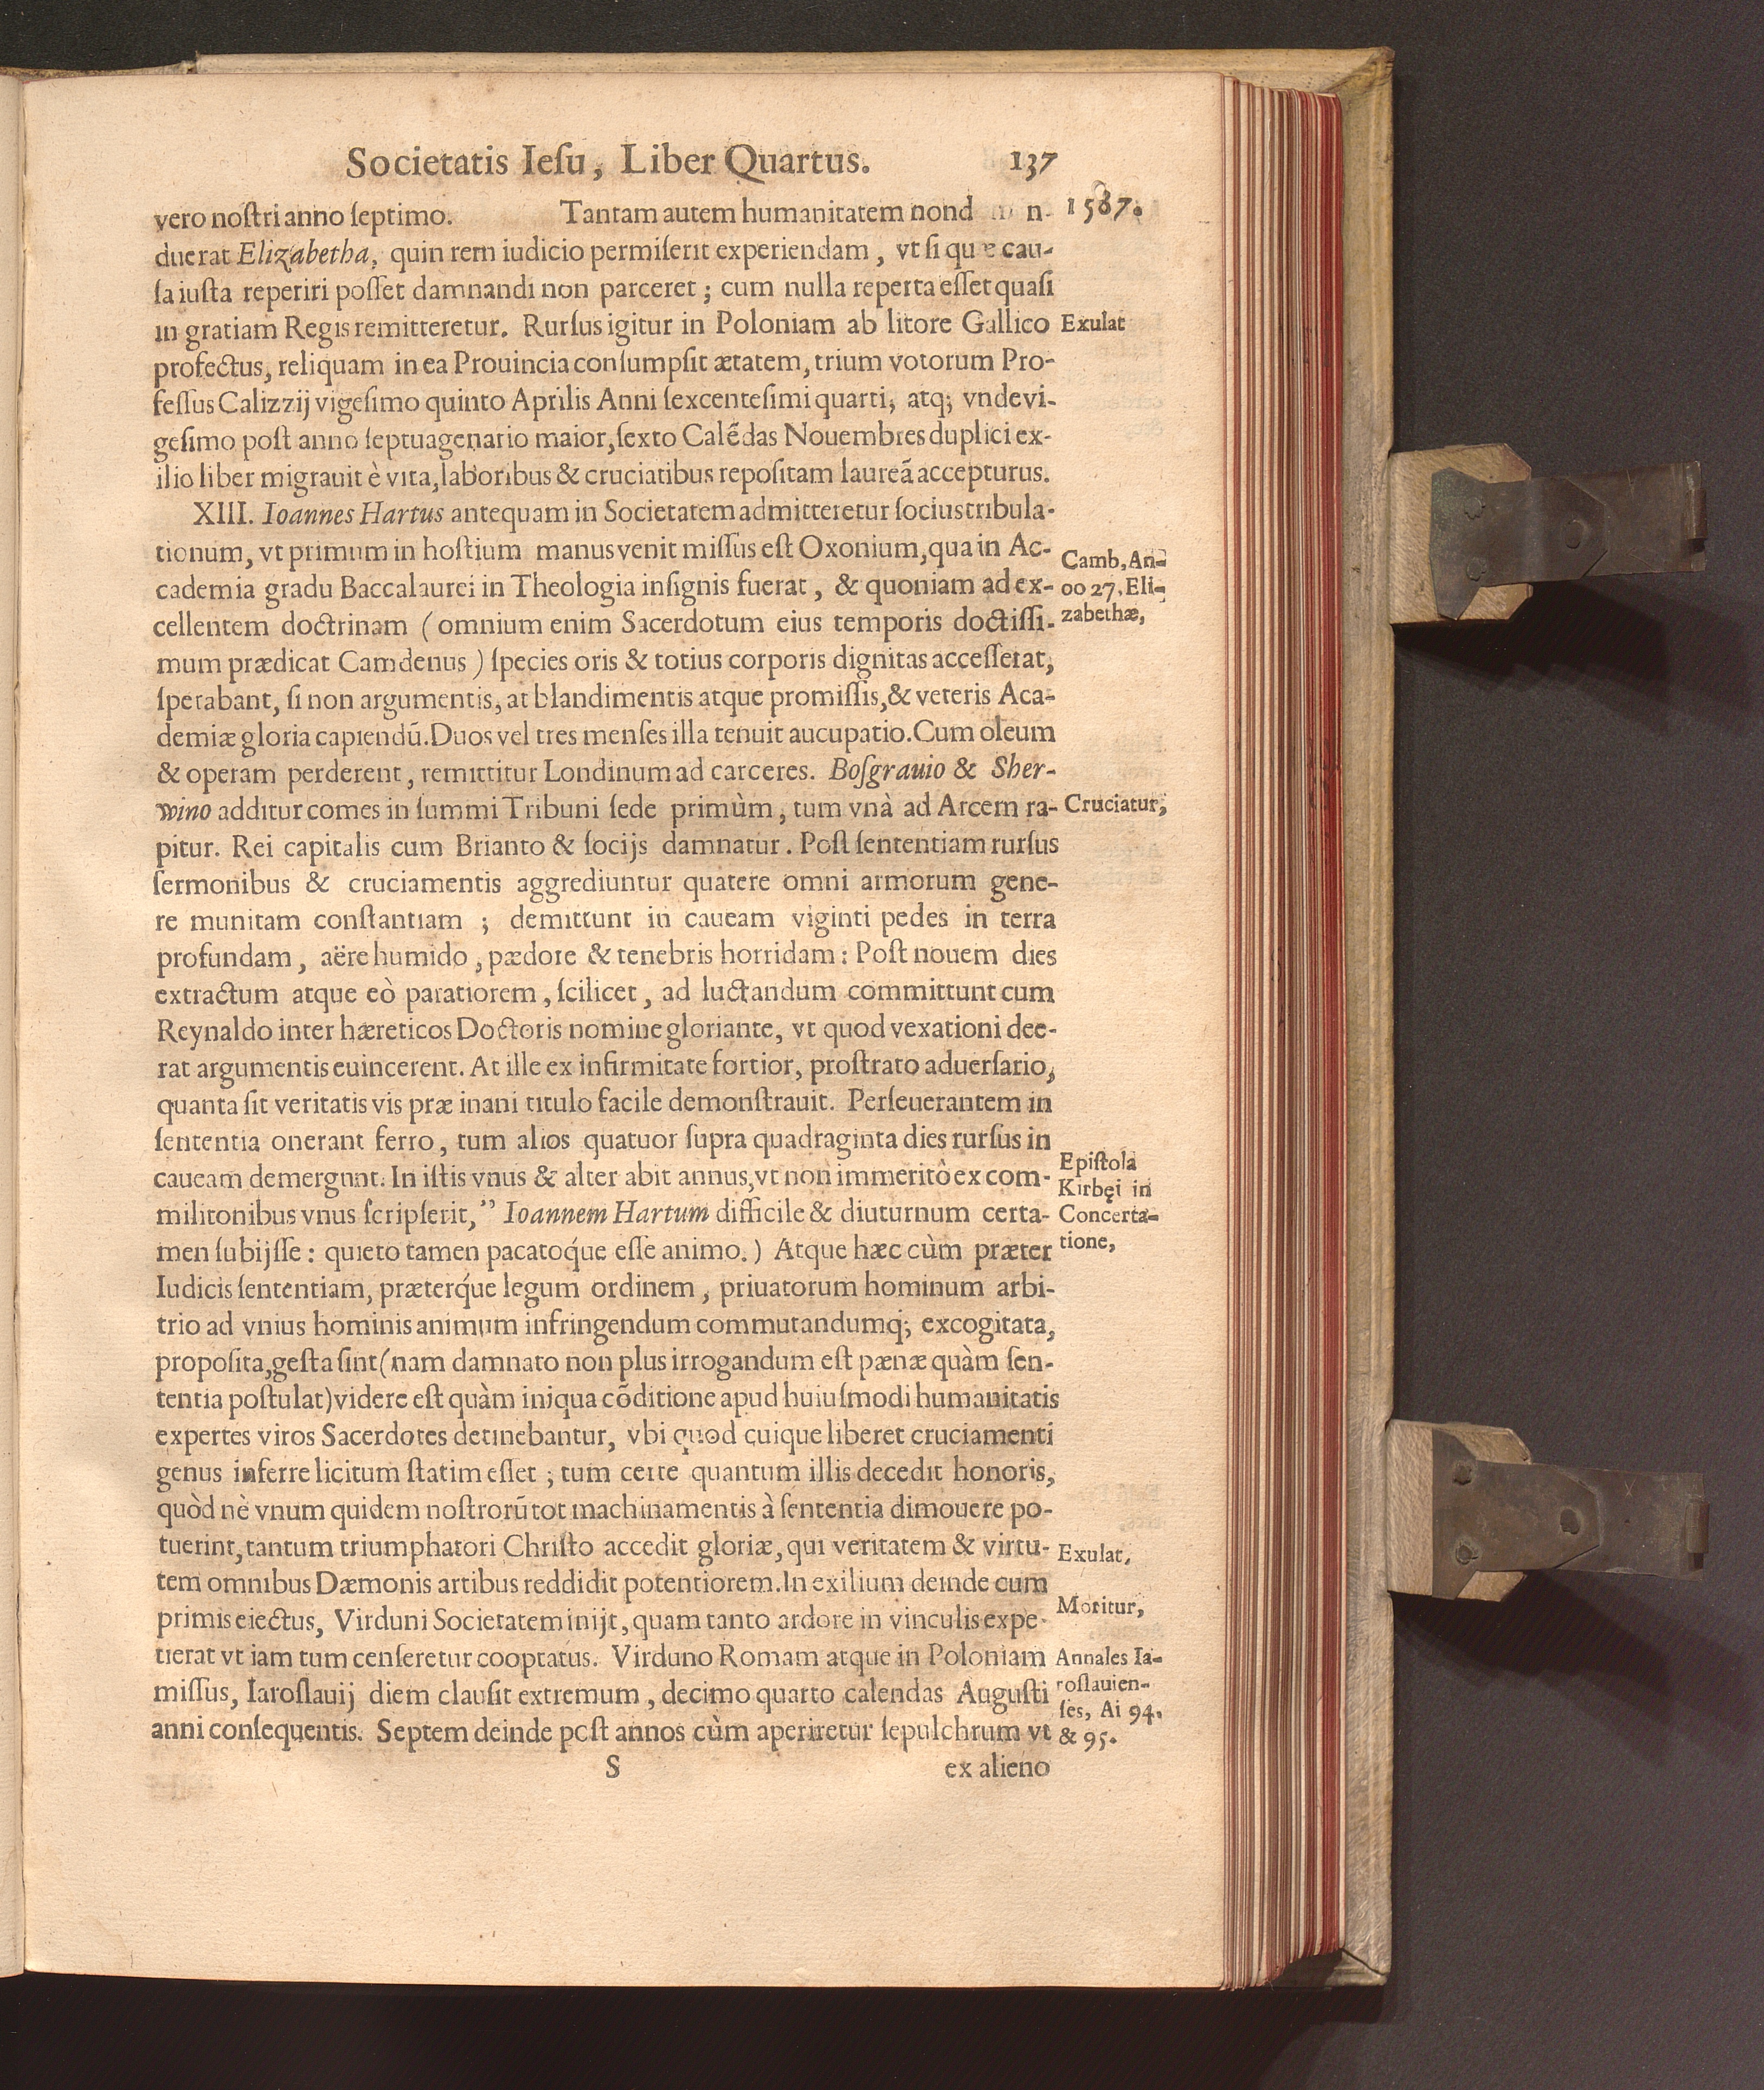 Societatis Ieſu, Liber Quartus. 137
1587.
vero noſtri anno ſeptimo. Tantam autem humanitatem nond n-
duerat Elizabetha, quin rem iudicio permiſerit experiendam, vt ſi quæ cau-
ſa iuſta reperiri poſſet damnandi non parceret; cum nulla reperta eſſet quaſi
in gratiam Regis remitteretur. Rurſus igitur in Poloniam ab litore Gallico
Exulat
profectus, reliquam in ea Prouincia conſumpſit ætatem, trium votorum Pro-
feſſus Calizzij vigeſimo quinto Aprilis Anni ſexcenteſimi quarti, atq; vndevi-
geſimo poſt anno ſeptuagenario maior, ſexto Calẽdas Nouembres duplici ex-
ilio liber migrauit è vita, laboribus & cruciatibus repoſitam laureã accepturus.
XIII. Ioannes Hartus antequam in Societatem admitteretur ſocius tribula-
tionum, vt primum in hoſtium manus venit miſſus eſt Oxonium, qua in Ac-
cademia gradu Baccalaurei in Theologia inſignis fuerat, & quoniam ad ex-
cellentem doctrinam (omnium enim Sacerdotum eius temporis doctiſſi-
Camb, An-
oo 27, Eli-
zabethæ,
mum prædicat Camdenus) ſpecies oris & totius corporis dignitas acceſſerat,
ſperabant, ſi non argumentis, at blandimentis atque promiſſis, & veteris Aca-
demiæ gloria capiendũ. Duos vel tres menſes illa tenuit aucupatio. Cum oleum
& operam perderent, remittitur Londinum ad carceres. Boſgrauio & Sher-
wino additur comes in ſummi Tribuni ſede primùm, tum vnà ad Arcem ra-
Cruciatur,
pitur. Rei capitalis cum Brianto & ſocijs damnatur. Poſt ſententiam rurſus
ſermonibus & cruciamentis aggrediuntur quatere omni armorum gene-
re munitam conſtantiam ; demittunt in caueam viginti pedes in terra
profundam, aëre humido, pædore & tenebris horridam: Poſt nouem dies
extractum atque eò paratiorem, ſcilicet, ad luctandum committunt cum
Reynaldo inter hæreticos Doctoris nomine gloriante, vt quod vexationi dee-
rat argumentis euincerent. At ille ex infirmitate fortior, proſtrato aduerſario,
quanta ſit veritatis vis præ inani titulo facile demonſtrauit. Perſeuerantem in
ſententia onerant ferro, tum alios quatuor ſupra quadraginta dies rurſus in
caueam demergunt. In iſtis vnus & alter abit annus, vt non immeritò ex com-
militonibus vnus ſcripſerit, ” Ioannem Hartum difficile & diuturnum certa-
men ſubijſſe: quieto tamen pacatoq́ue eſſe animo.) Atque hæc cùm præter
Epiſtola
Kirbęi in
Concerta-
tione,
Iudicis ſententiam, præterq́ue legum ordinem, priuatorum hominum arbi-
trio ad vnius hominis animum infringendum commutandumq́; excogitata,
propoſita, geſta ſint (nam damnato non plus irrogandum eſt pænæ quàm ſen-
tentia poſtulat) videre eſt quàm iniqua cõditione apud huiuſmodi humanitatis
expertes viros Sacerdotes detinebantur, vbi quod cuique liberet cruciamenti
genus inferre licitum ſtatim eſſet ; tum certe quantum illis decedit honoris,
quòd nè vnum quidem noſtrorũ tot machinamentis à ſententia dimouere po-
tuerint, tantum triumphatori Chriſto accedit gloriæ, qui veritatem & virtu-
Exulat,
tem omnibus Dæmonis artibus reddidit potentiorem. In exilium deinde cum
primis eiectus, Virduni Societatem inijt, quam tanto ardore in vinculis expe-
Moritur,
tierat vt iam tum cenſeretur cooptatus. Virduno Romam atque in Poloniam
miſſus, Iaroſlauij diem clauſit extremum, decimo quarto calendas Auguſti
anni conſequentis. Septem deinde poſt annos cùm aperiretur ſepulchrum vt
Annales Ia-
roſlauien-
ſes, Ai 94.
& 95.
S ex alieno